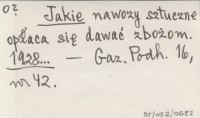 o?
Jakie nawozy sztuczne
opłaca się dawać zbożom.
1928... — Gaz. Podh. 16,
nr 42.